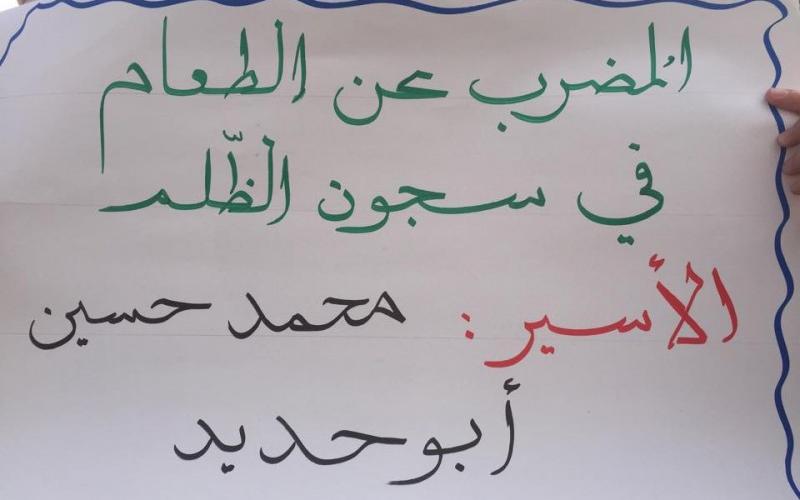 المُضرب عن الطعام
في سجون الظّلم
الأسير: محمد حسين
أبو حديد